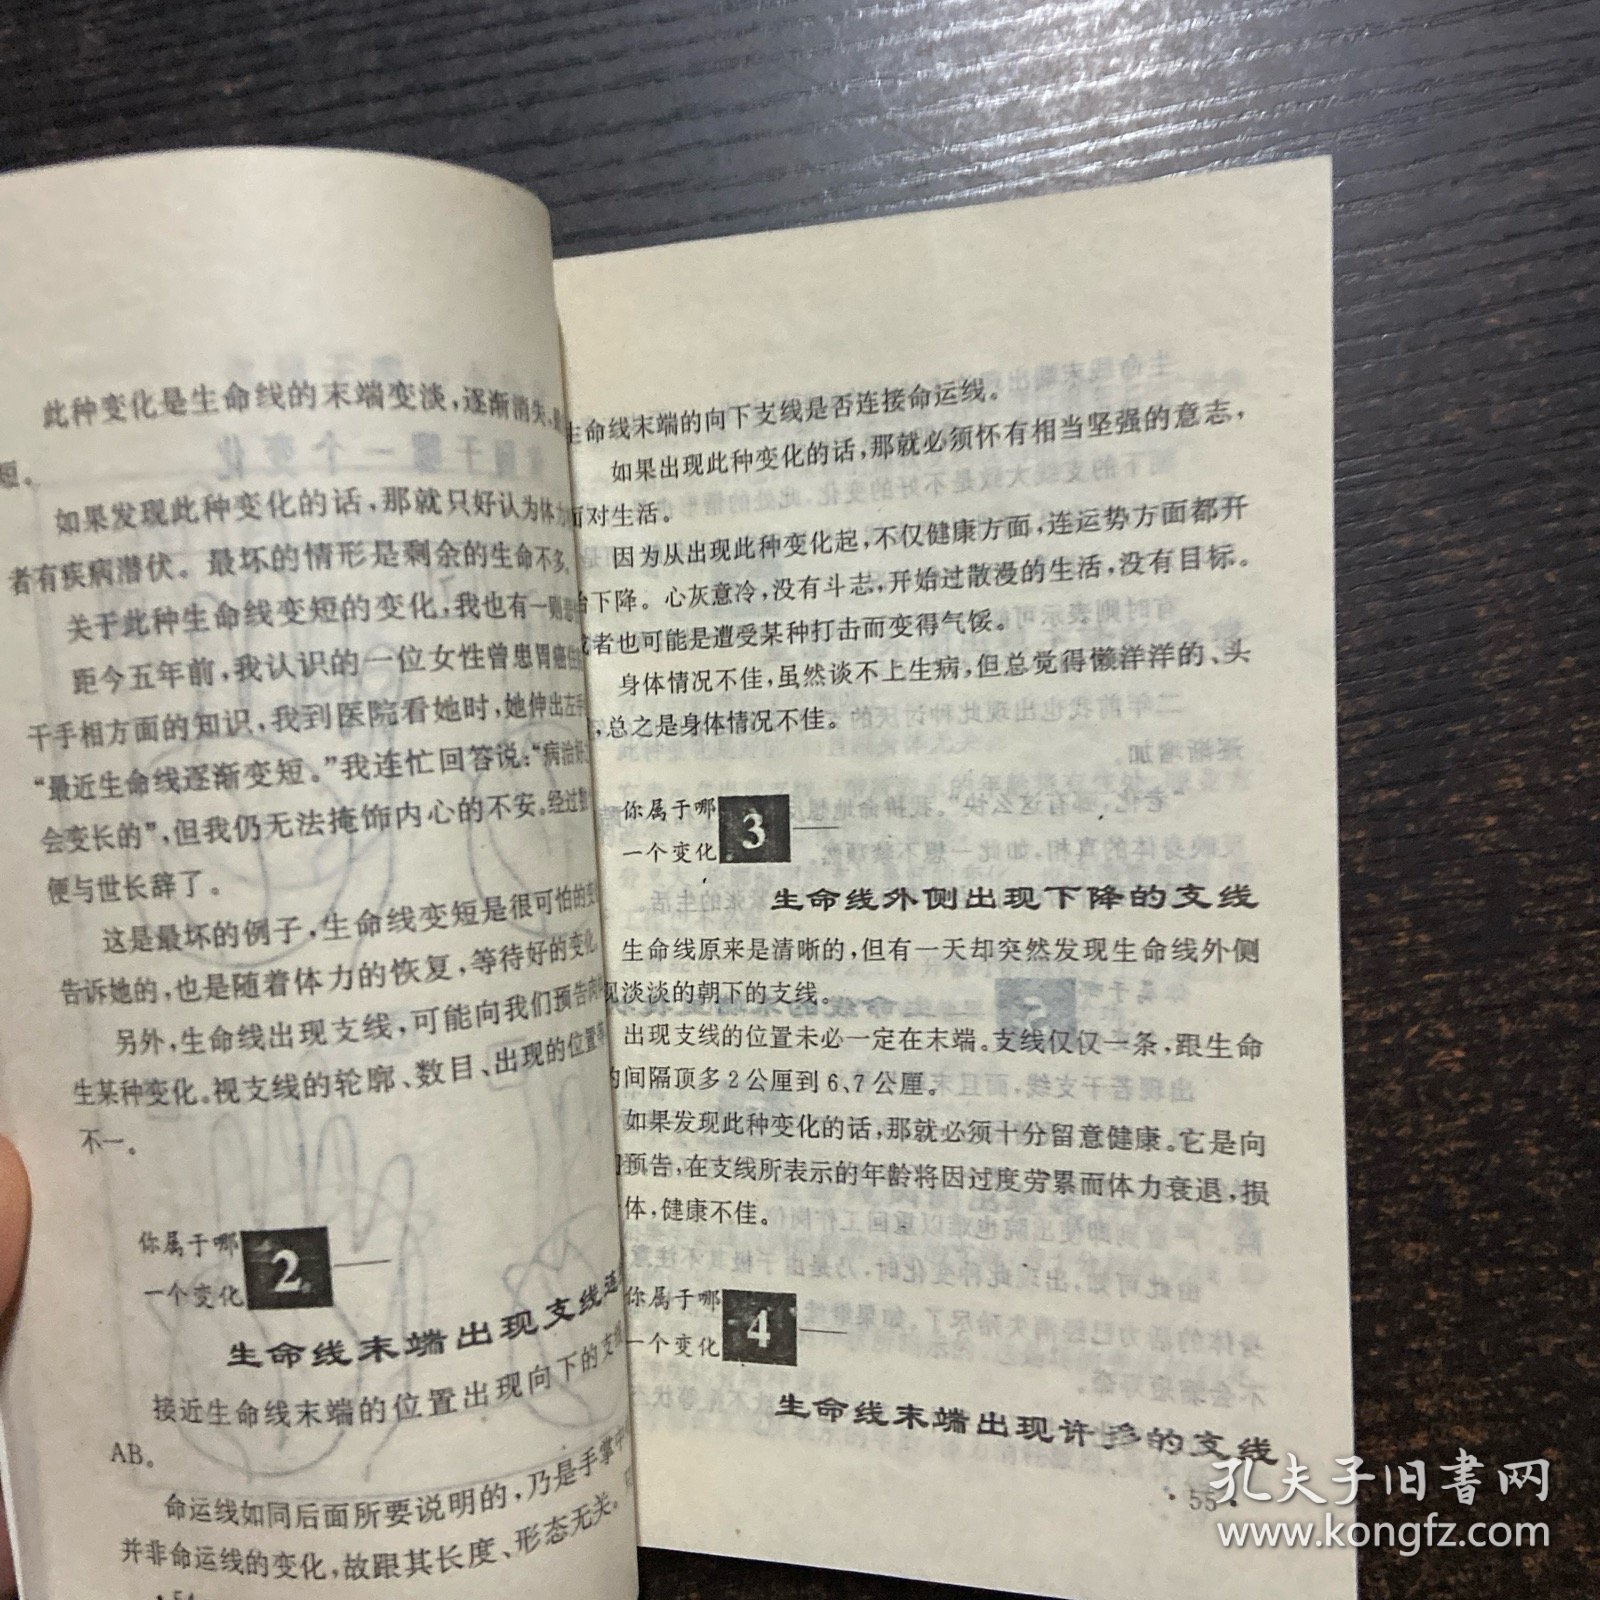 此种变化是生命线的末端变淡，逐渐消失，
短。
如果发现此种变化的话，那就只好认为体力
者有疾病潜伏。最坏的情形是剩余的生命不多。
关于此种生命线变短的变化，我也有一则
距今五年前，我认识的一位女性曾患胃癌住
干手相方面的知识，我到医院看她时，她伸出左手
“最近生命线逐渐变短。”我连忙回答说：“病治好
会变长的”，但我仍无法掩饰内心的不安。经过
便与世长辞了。
这是最坏的例子，生命线变短是很可怕的变
告诉她的，也是随着体力的恢复，等待好的变化
另外，生命线出现支线，可能向我们预告
生某种变化。视支线的轮廓、数目、出现的位置等
不一。
你属于哪
一个变化
2
生命线末端出现支线连
接近生命线末端的位置出现向下的支线
AB。
命运线如同后面所要说明的，乃是手掌中
并非命运线的变化，故跟其长度、形态无关。
·54
生命线末端的向下支线是否连接命运线。
如果出现此种变化的话，那就必须怀有相当坚强的意志，
面对生活。
因为从出现此种变化起，不仅健康方面，连运势方面都开
始下降。心灰意冷，没有斗志，开始过散漫的生活，没有目标。
或者也可能是遭受某种打击而变得气馁。
身体情况不佳，虽然谈不上生病，但总觉得懒洋洋的、头
，总之是身体情况不佳。
你属于哪
一个变化
3
生命线外侧出现下降的支线
生命线原来是清晰的，但有一天却突然发现生命线外侧
现淡淡的朝下的支线。
出现支线的位置未必一定在末端。支线仅仅一条，跟生命
的间隔顶多2公厘到6、7公厘。
如果发现此种变化的话，那就必须十分留意健康。它是向
预告，在支线所表示的年龄将因过度劳累而体力衰退，损
体，健康不佳。
你属于哪
一个变化
4
生命线末端出现许多的支线
·55·
孔夫子旧书网
www.kongfz.com